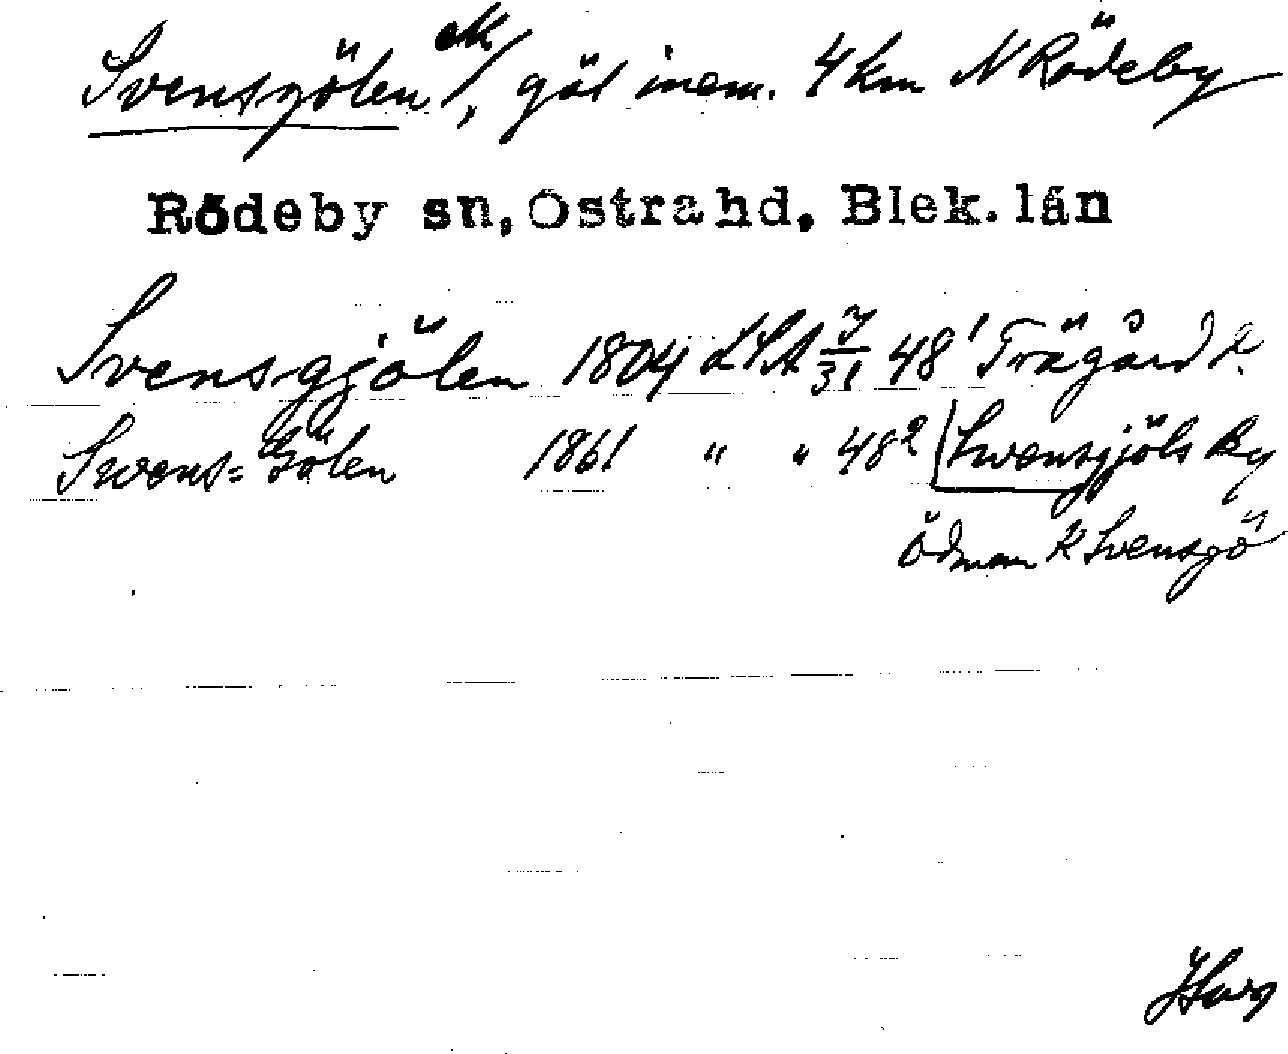 Svensgölen ek/, göl inom. 4 km N Rödeby
Rödeby sn, Östra hd, Blek. län
Svensgjölen 1804 LSA 7/31 48¹ Trägård
Swens=Gölen 1861 " " 48² Swensgjöls By
Ödman K Svensgö